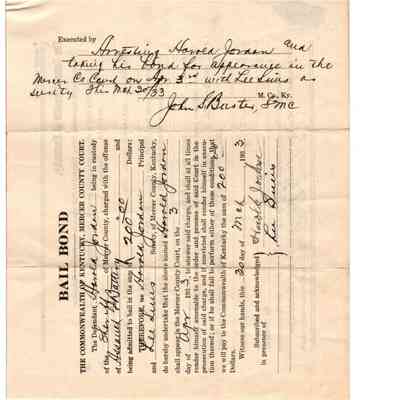 Executed by Arresting Harold Jordan and
taking his bond for appearance in the
Mercer Co Court on Apr. 3rd with Lee Sims as
surety This Mch 20/33
M. Co. Ky.
John S Buster, S M C
BAIL BOND
THE COMMONWEALTH OF KENTUCKY, MERCER COUNTY COURT.
The Defendant, Harold Jordan being in custody
of the Sheriff of Mercer County, charged with the offense
of Assault & Battery and
being admitted to bail in the sum of 200.00 Dollars:
THEREFORE, as Harold Jordan Principal
and Lee Sims of Mercer County, Kentucky,
do hereby undertake that the above named Harold Jordan
shall appear in the Mercer County Court, on the 3
day of Apr 1933, to answer said charge, and shall at all times
render himself amenable to the order and process of said Court in the
prosecution of said charge, and if convicted shall render himself in execu-
tion thereof; or if he shall fail to perform either of these conditions, that
we will pay to the Commonwealth of Kentucky the sum of 200
Dollars.
Witness our hands, this 20 day of Mch 1933
Subscribed and acknowledged Harold Jordan
in presence of Lee Sims